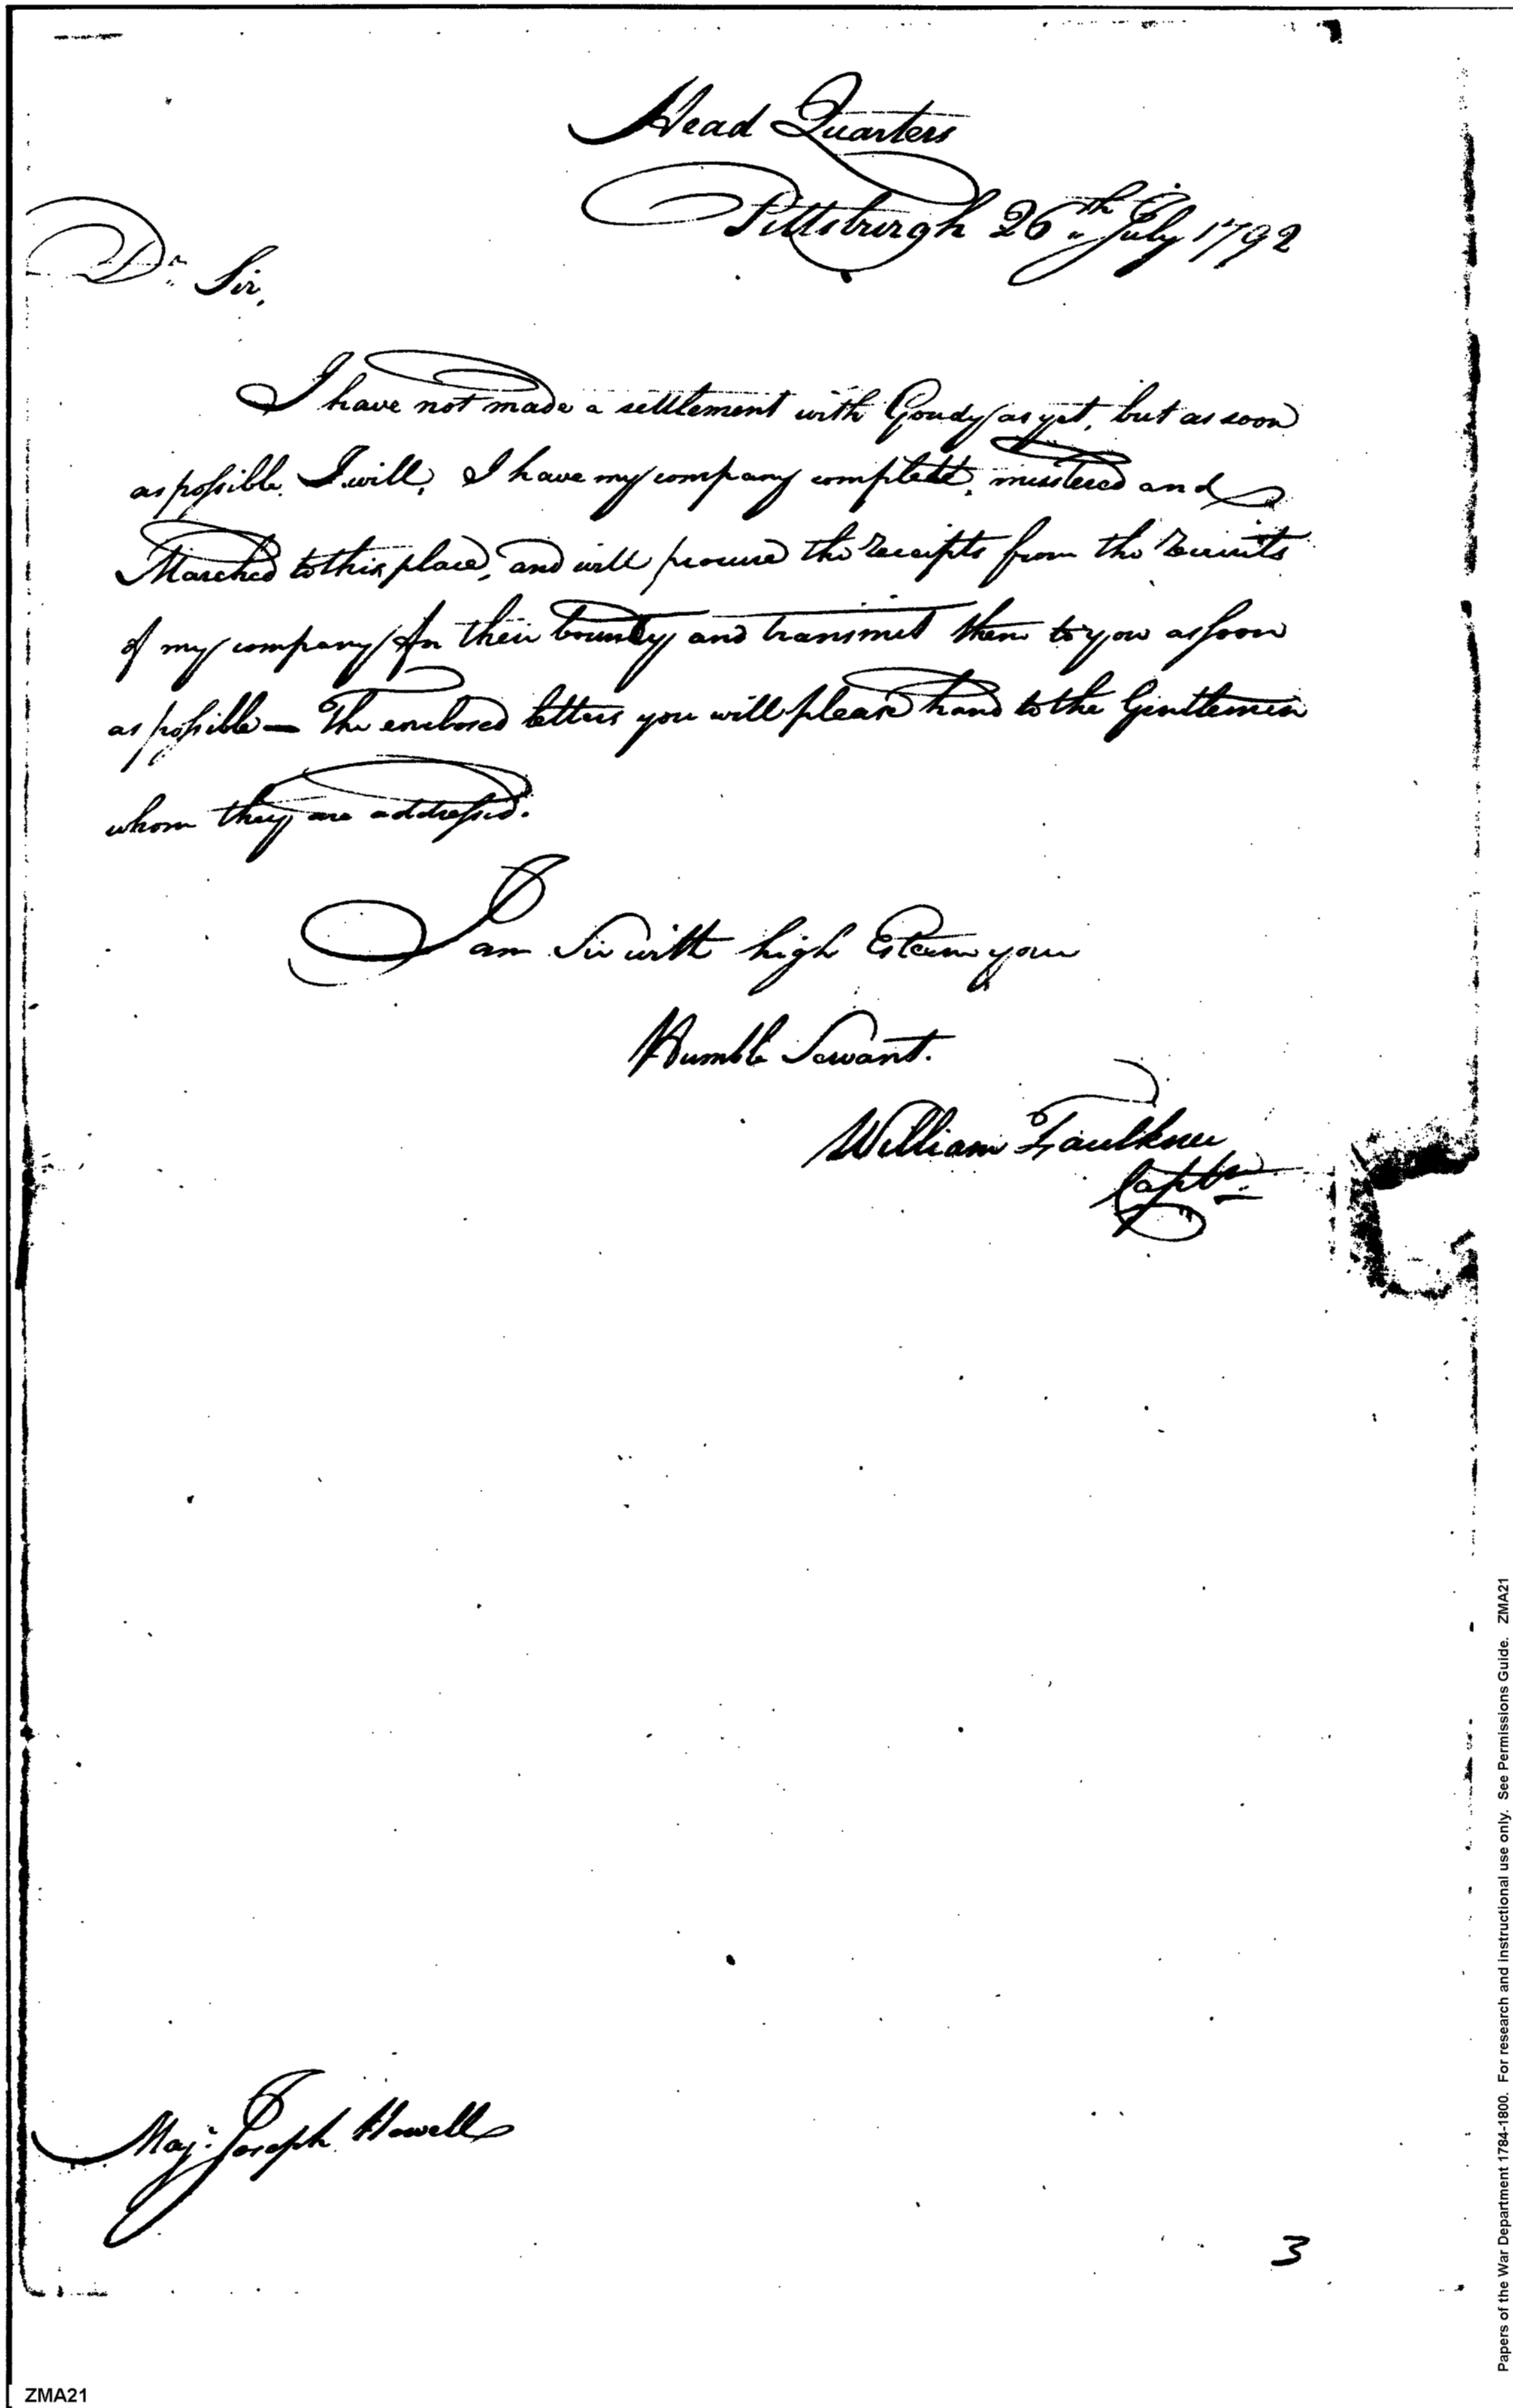 Head Quarters
Pittsburgh 26th July 1792
Dr Sir,
I have not made a settlement with Goudy as yet, but as soon
as possible I will, I have my company complete, mustered and
Marched to this place, and will procure the receipts from the recruits
of my company for their bounty and transmit them to you as soon
as possible — The enclosed letters you will please hand to the Gentlemen
whom they are addressed.
I am Sir with high Esteem your
Humble Servant.
William Faulkner
Captn
Majr Joseph Howell
3
ZMA21
Papers of the War Department 1784-1800. For research and instructional use only. See Permissions Guide. ZMA21